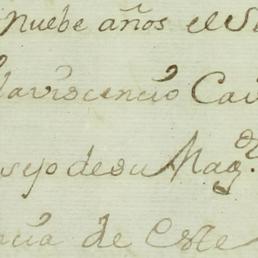 nuebe años el S
laviscencio Cav
sejo de su Mag.d
ncia de Este